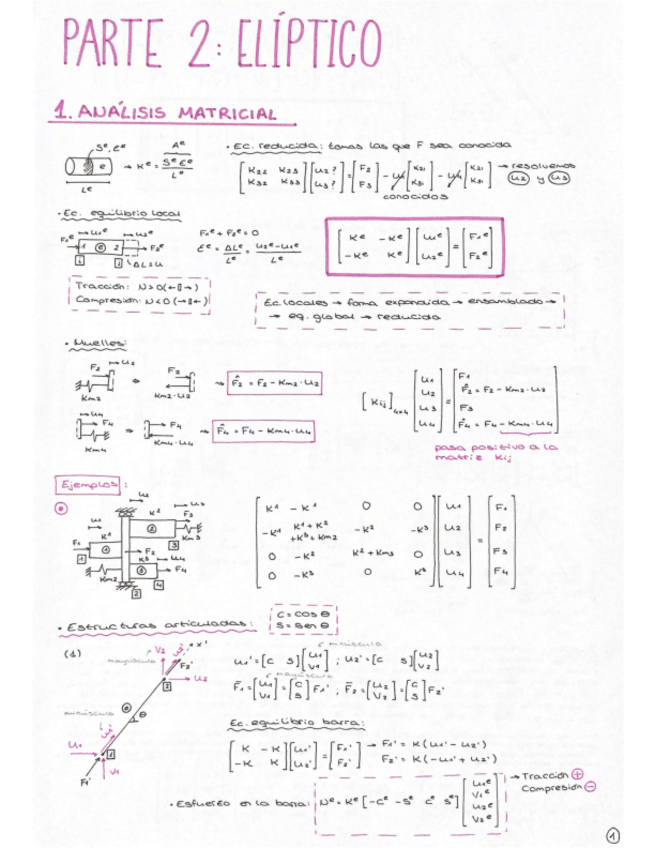 PARTE 2: ELÍPTICO
1. ANÁLISIS MATRICIAL
Sᵉ, Eᵉ
e
Lᵉ
Aᵉ
→ Kᵉ = SᵉEᵉ / Lᵉ
· Ec. reducida: tomas las que F sea conocida
[K22 K23; K32 K33] [u2?; u3?] = [F2; F3] - u1 [K21; K31] - u4
→ resolvemos
u2 y u3
conocidos
· Ec. equilibrio local
F1ᵉ → u1ᵉ → u2ᵉ
1 e 2 → F2ᵉ
i j ΔL = u
F1ᵉ + F2ᵉ = 0
Eᵉ = ΔLᵉ / Lᵉ = u2ᵉ - u1ᵉ / Lᵉ
[Kᵉ -Kᵉ; -Kᵉ Kᵉ] [u1ᵉ; u2ᵉ] = [F1ᵉ; F2ᵉ]
Tracción: N>0 (←▯→)
Compresión: N<0 (→▯←)
Ec. locales → forma expandida → ensamblado →
→ eq. global → reducida
· Muelles:
F2 → u2
Km2
F2
Km2·u2
→ F̂2 = F2 - Km2·u2
→ u4
→ F4
Km4
→ F4
Km4·u4
→ F̂4 = F4 - Km4·u4
[Kij]4x4 [u1; u2; u3; u4] = [F1; F̂2 = F2 - Km2·u2; F3; F̂4 = F4 - Km4·u4]
pasa positivo a la
matriz Kij
Ejemplos:
u2
u3
u1 K² F3
K¹ 2
Km3
F1 1 3
1 F2
K³ u4
Km2 3 F4
4
2
[K¹ -K¹ 0 0; -K¹ K¹+K²+K³+Km2 -K² -K³; 0 -K² K²+Km3 0; 0 -K³ 0 K³] [u1; u2; u3; u4] = [F1; F2; F3; F4]
· Estructuras articuladas:
C = cos θ
S = sen θ
(1)
V2 x'
mayúscula u2' F2'
2 U2
minúscula e θ
u1'
U1 1
F1' V1
minúscula
u1' = [C S] [u1; v1] ; u2' = [C S] [u2; v2]
mayúscula
F̄1 = [U1; V1] = [C; S] F1' ; F̄2 = [U2; V2] = [C; S] F2'
Ec. equilibrio barra:
[K -K; -K K] [u1'; u2'] = [F1'; F2'] → F1' = K(u1' - u2')
F2' = K(-u1' + u2')
· Esfuerzo en la barra: Nᵉ = Kᵉ [-Cᵉ -Sᵉ Cᵉ Sᵉ] [u1ᵉ; v1ᵉ; u2ᵉ; v2ᵉ]
→ Tracción +
Compresión -
1